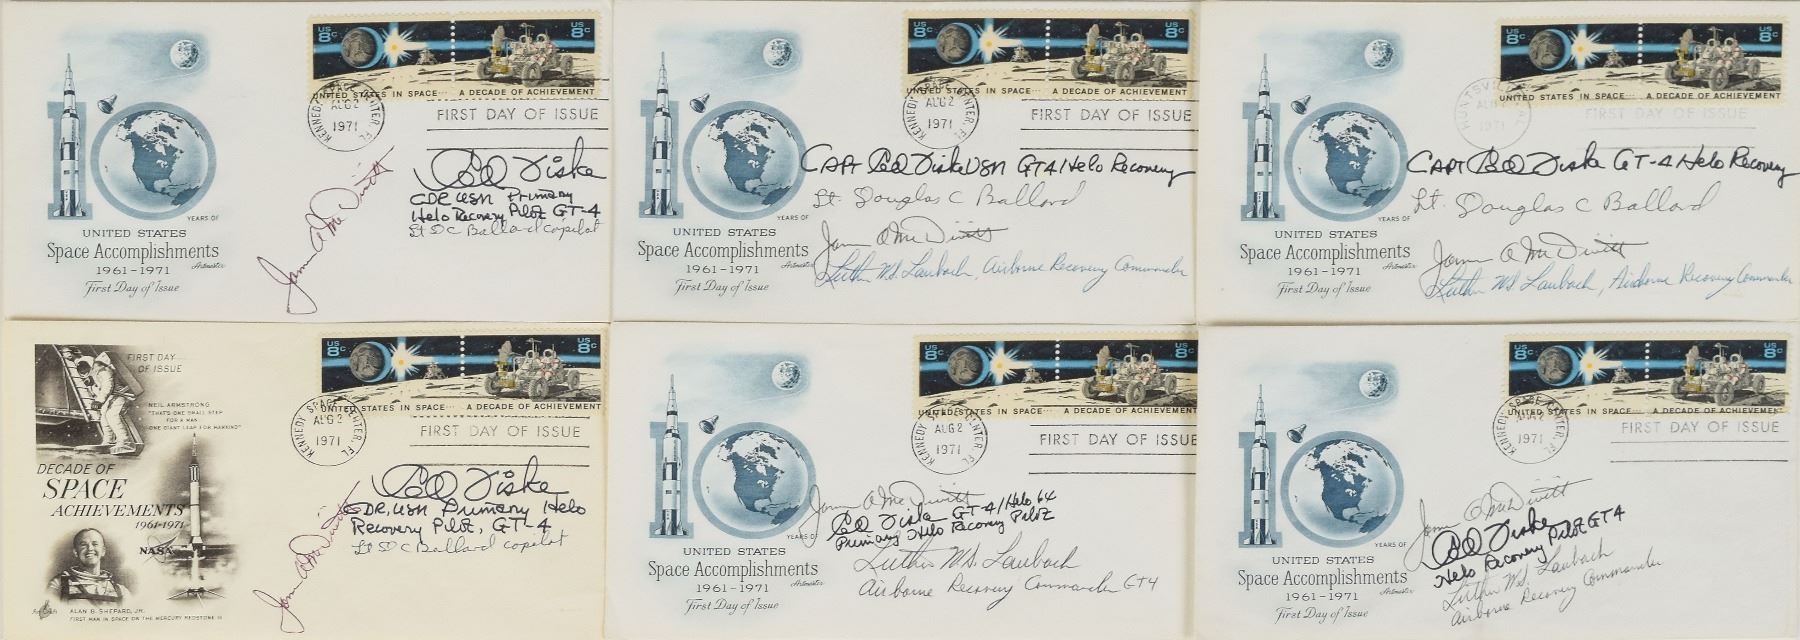 US 8c
8c
UNITED STATES IN SPACE... A DECADE OF ACHIEVEMENT
KENNEDY SPACE CENTER, FL
AUG 2
1971
FIRST DAY OF ISSUE
YEARS OF
UNITED STATES
Space Accomplishments
1961-1971
Artmaster
First Day of Issue
James A McDivitt
Fiske
CDR, USN Primary
Helo Recovery Pilot GT-4
Lt D C Ballard copilot
US 8c
8c
UNITED STATES IN SPACE... A DECADE OF ACHIEVEMENT
KENNEDY SPACE CENTER, FL
AUG 2
1971
FIRST DAY OF ISSUE
YEARS OF
UNITED STATES
Space Accomplishments
1961-1971
Artmaster
First Day of Issue
CAPT Fiske USN GT4/Helo Recovery
Lt. Douglas C Ballard
James A McDivitt
Luther W. Laubach, Airborne Recovery Commander
US 8c
8c
UNITED STATES IN SPACE... A DECADE OF ACHIEVEMENT
HUNTSVILLE, AL
AUG 2
1971
FIRST DAY OF ISSUE
YEARS OF
UNITED STATES
Space Accomplishments
1961-1971
Artmaster
First Day of Issue
CAPT Fiske GT-4 Helo Recovery
Lt. Douglas C Ballard
James A McDivitt
Luther W. Laubach, Airborne Recovery Commander
FIRST DAY
OF ISSUE
NEIL ARMSTRONG
"THAT'S ONE SMALL STEP
FOR A MAN,
ONE GIANT LEAP FOR MANKIND"
DECADE OF
SPACE
ACHIEVEMENTS
1961-1971
NASA
ArtCraft
ALAN B. SHEPARD, JR.
FIRST MAN IN SPACE ON THE MERCURY REDSTONE III
US 8c
8c
UNITED STATES IN SPACE... A DECADE OF ACHIEVEMENT
KENNEDY SPACE CENTER, FL
AUG 2
1971
FIRST DAY OF ISSUE
James A McDivitt
Fiske
CDR, USN Primary Helo
Recovery Pilot, GT-4
Lt D C Ballard copilot
US 8c
8c
UNITED STATES IN SPACE... A DECADE OF ACHIEVEMENT
KENNEDY SPACE CENTER, FL
AUG 2
1971
FIRST DAY OF ISSUE
YEARS OF
UNITED STATES
Space Accomplishments
1961-1971
Artmaster
First Day of Issue
James A McDivitt
Fiske GT-4/Helo 64
Primary Helo Recovery Pilot
Luther W. Laubach
Airborne Recovery Commander GT4
US 8c
8c
UNITED STATES IN SPACE... A DECADE OF ACHIEVEMENT
KENNEDY SPACE CENTER, FL
AUG 2
1971
FIRST DAY OF ISSUE
YEARS OF
UNITED STATES
Space Accomplishments
1961-1971
Artmaster
First Day of Issue
James A McDivitt
Fiske
Helo Recovery Pilot GT4
Luther W. Laubach
Airborne Recovery Commander